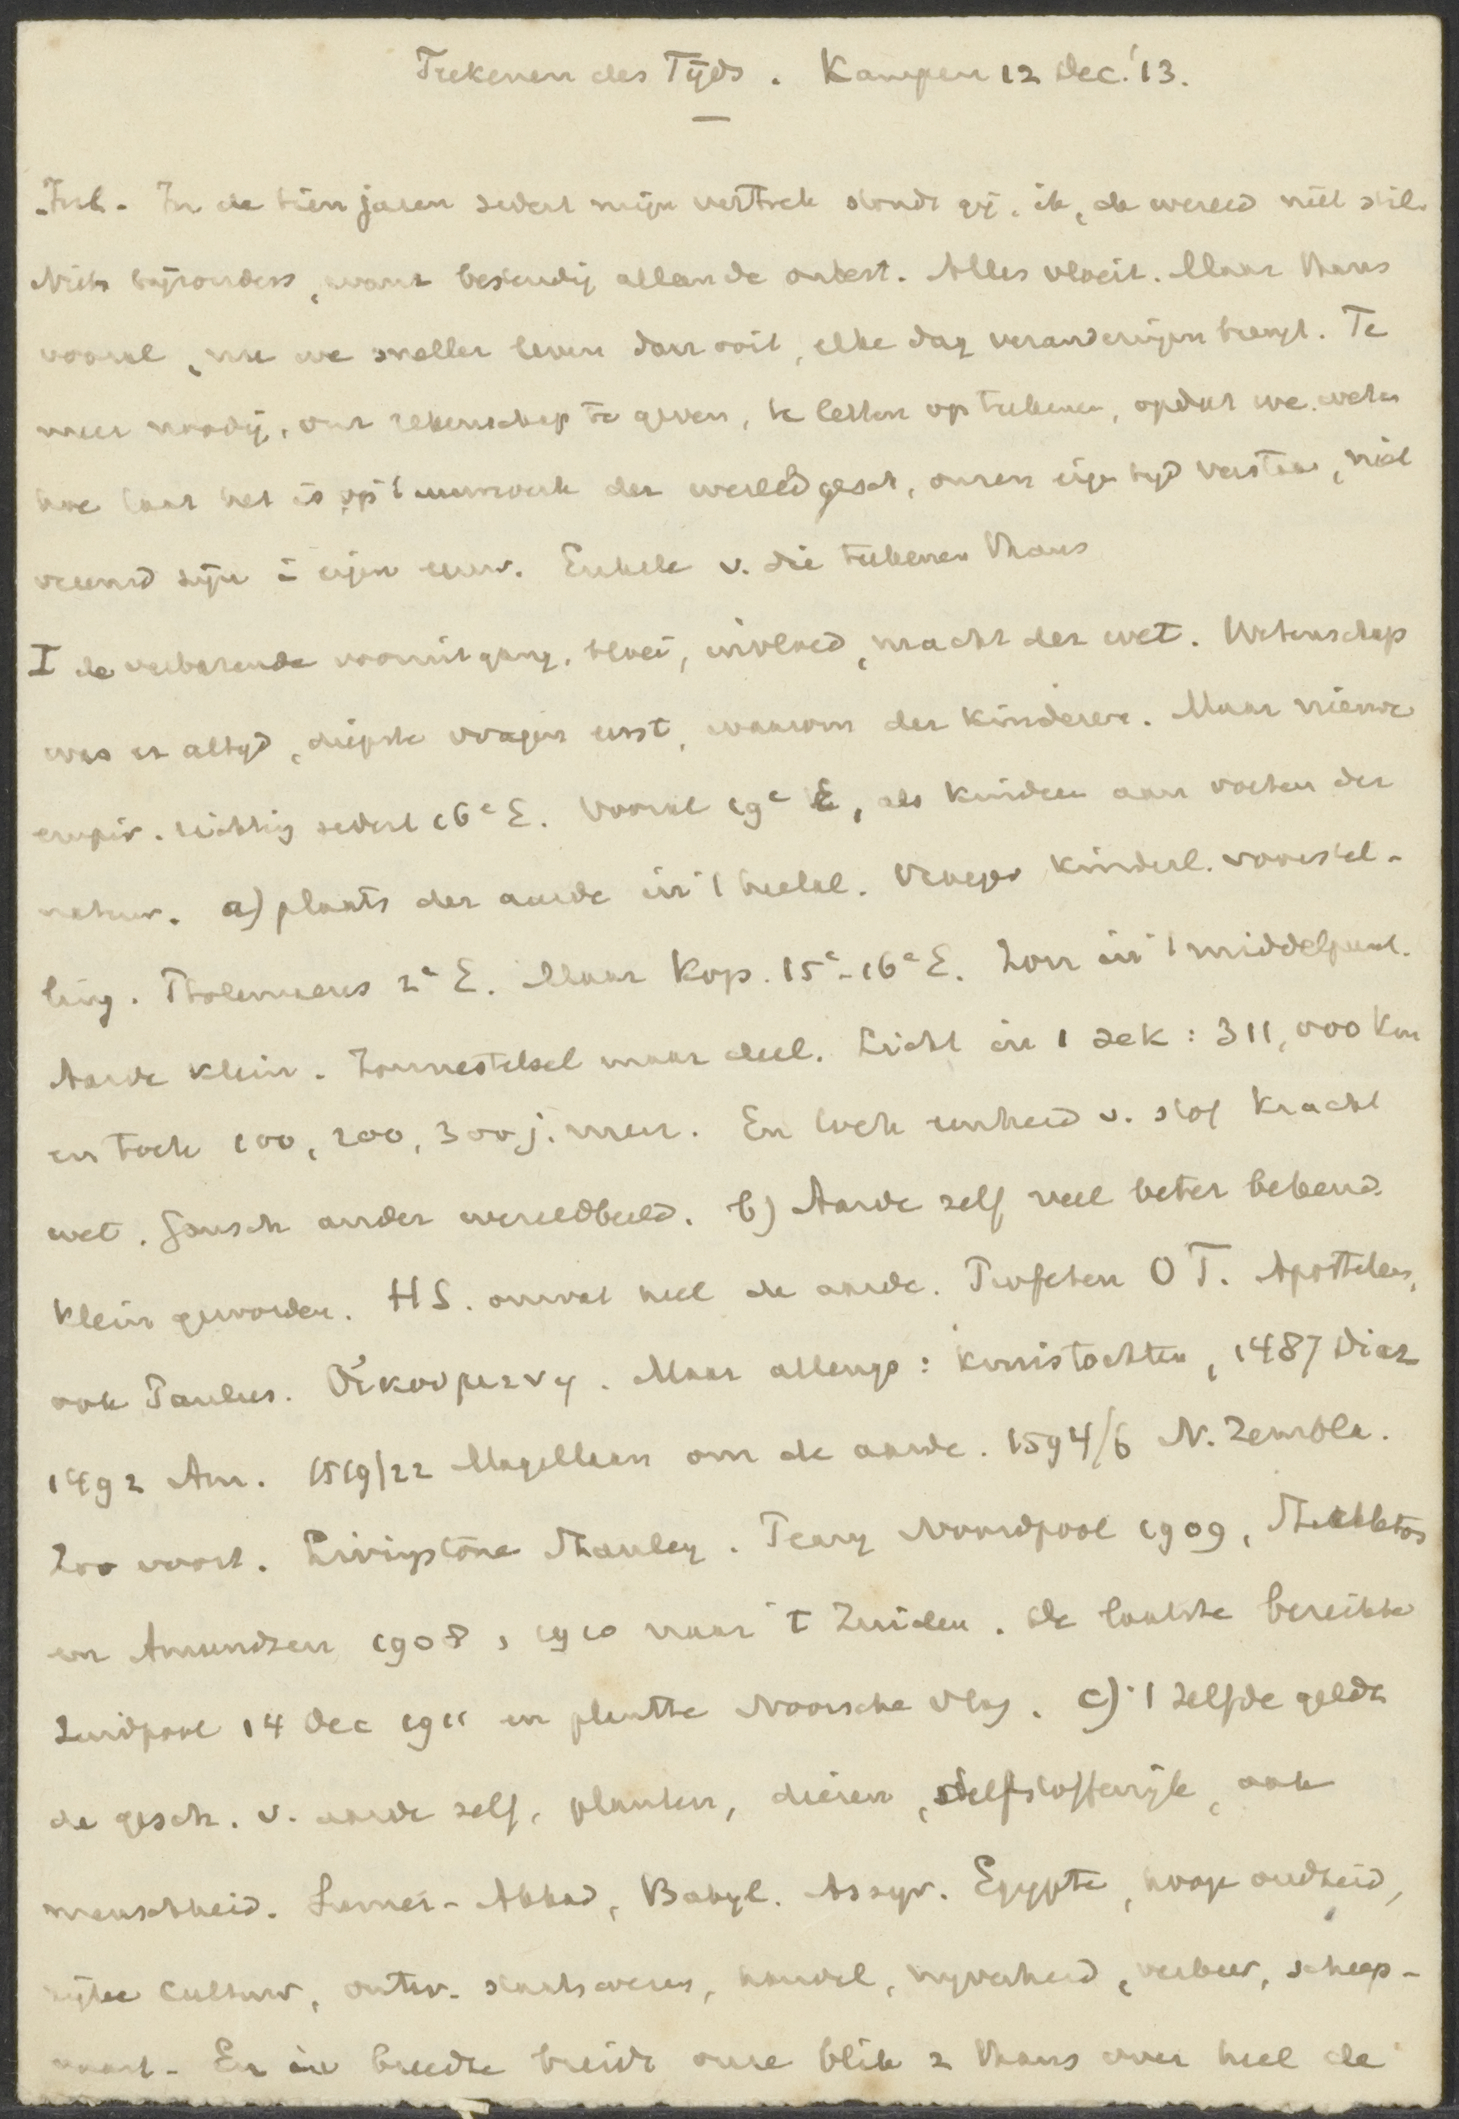 Teekenen des Tijds. Kampen 12 Dec. '13.
Inl. In de tien jaren sedert mijn vertrek stondt gij, ik, de wereld niet stil.
Niets bijzonders, want bestendig allen de onrust. Alles vloeit. Maar thans
vooral, nu we sneller leven dan ooit, elke dag veranderingen brengt. Te
meer noodig, ons rekenschap te geven, te letten op teekenen, opdat we weten
hoe laat het is op 't uurwerk der wereldgesch, onzen eigen tijd verstaan, niet
vreemd zijn i eigen eeuw. Enkele v. die teekenen thans
I de verbazende vooruitgang, bloei, invloed, macht der wet. Wetenschap
was er altijd, diepste vragen eerst, waarom der kinderen. Maar nieuwe
empir. richting sedert 16e E. Vooral 19e E, als kinderen aan voeten der
natuur. a) plaats der aarde in 't heelal. Vroeger kinderl. voorstel-
ling. Ptolemaeus 2e E. Maar Kop. 15e-16e E. Zon in 't middelpunt.
Aarde klein. Zonnestelsel maar deel. Licht in 1 sek: 311,000 Km
en toch 100, 200, 300 j. meer. En toch eenheid v. stof kracht
wet. Gansch ander wereldbeeld. b) Aarde zelf veel beter bekend.
Klein geworden. H S. omvat heel de aarde. Profeten O T. Apostelen,
ook Paulus. Οἰκουμενη. Maar allengs: kruistochten, 1487 Diaz
1492 Am. 1519/22 Magellaan om de aarde. 1594/6 N. Zembla.
Zoo voort. Livingstone Stanley. Peary Noordpool 1909, Shackleton
en Amundsen 1908, 1910 naar 't Zuiden. De laatste bereikte
Zuidpool 14 Dec 1911 en plantte Noorsche vlag. c) 't zelfde geldt
de gesch. v. aarde zelf, planten, dieren, delfstoffenrijk, ook
menschheid. Sumer-Akkad, Babyl. Assyr. Egypte, hooge oudheid,
rijke cultuur, ontw. staatswezen, handel, nijverheid, verkeer, scheep-
vaart. En in breedte breidt onze blik z thans over heel de